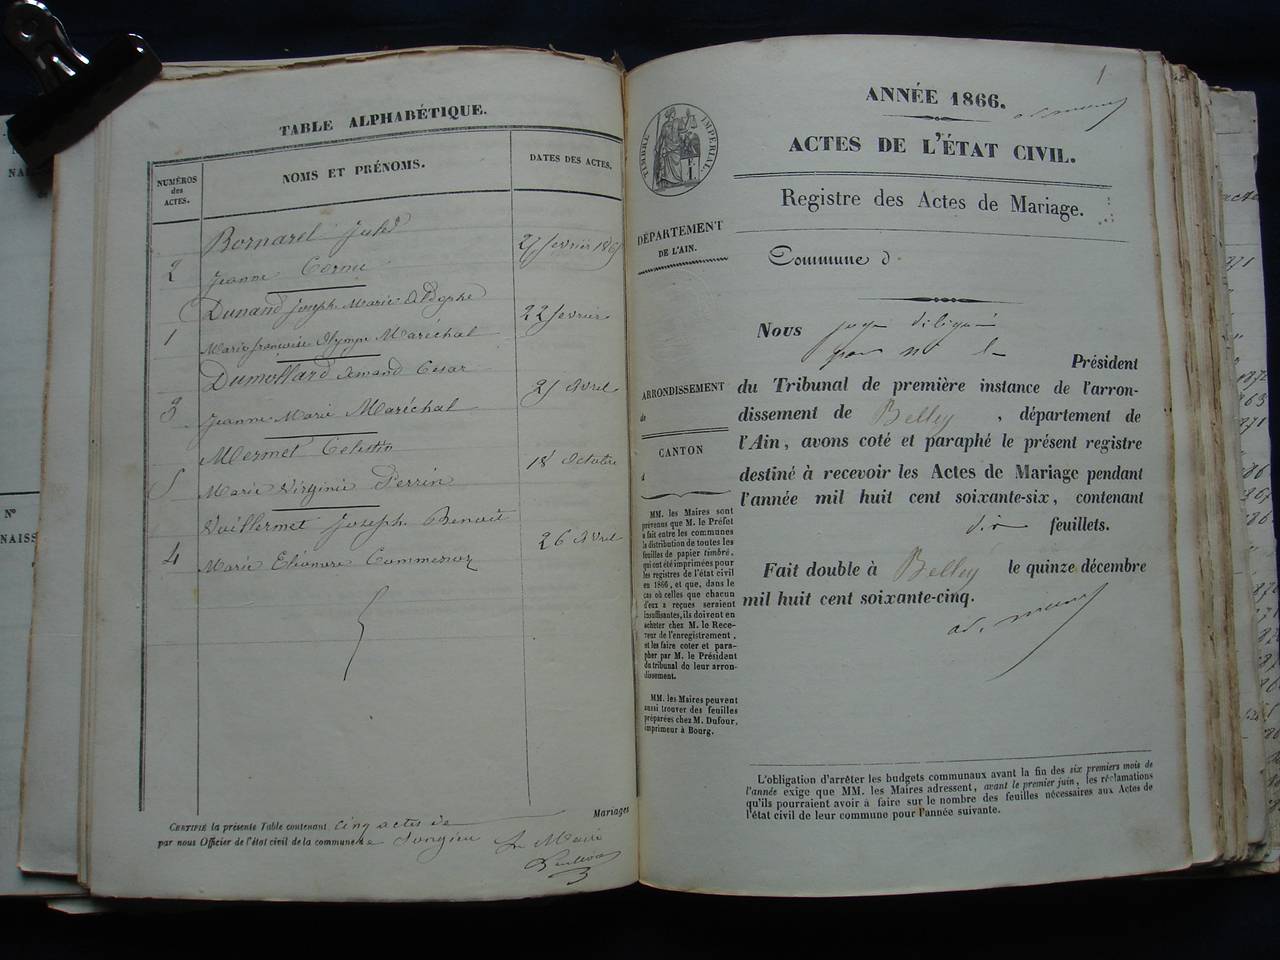 TABLE ALPHABÉTIQUE.
NUMÉROS
des
ACTES.
NOMS ET PRÉNOMS.
DATES DES ACTES.
Bornarel Jules
27 février 1865
2
Jeanne Cornu
Dunand Joseph Marie Adolphe
22 février
1
Marie françoise Olympe Maréchal
Dumollard Armand César
21 Avril
3
Jeanne Marie Maréchal
Mermet Célestin
18 Octobre
5
Marie Virginie Perrin
Vuillermet Joseph Benoit
26 Avril
4
Marie Eléonore
CERTIFIÉ la présente Table contenant cinq actes de Mariages
par nous Officier de l'état civil de la commune de Songieu Le Maire
1
ANNÉE 1866.
ACTES DE L'ÉTAT CIVIL.
Registre des Actes de Mariage.
TIMBRE IMPÉRIAL
DÉPARTEMENT
DE L'AIN.
Commune d
ARRONDISSEMENT
de
CANTON
d
MM. les Maires sont
prévenus que M. le Préfet
a fait entre les communes
la distribution de toutes les
feuilles de papier timbré,
qui ont été imprimées pour
les registres de l'état civil
en 1866, et que, dans le
cas où celles que chacun
d'eux a reçues seraient
insuffisantes, ils doivent en
acheter chez M. le Rece-
veur de l'enregistrement,
et les faire coter et para-
pher par M. le Président
du tribunal de leur arron-
dissement.
MM. les Maires peuvent
aussi trouver des feuilles
préparées chez M. Dufour,
imprimeur à Bourg.
Nous juge délégué
pour M. le Président
du Tribunal de première instance de l'arron-
dissement de Belley, département de
l'Ain, avons coté et paraphé le présent registre
destiné à recevoir les Actes de Mariage pendant
l'année mil huit cent soixante-six, contenant
dix feuillets.
Fait double à Belley le quinze décembre
mil huit cent soixante-cinq.
L'obligation d'arrêter les budgets communaux avant la fin des six premiers mois de
l'année exige que MM. les Maires adressent, avant le premier juin, les réclamations
qu'ils pourraient avoir à faire sur le nombre des feuilles nécessaires aux Actes de
l'état civil de leur commune pour l'année suivante.